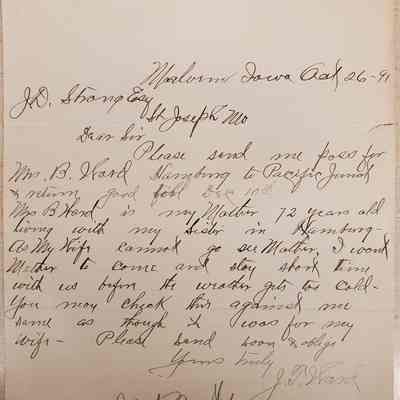 Malvern Iowa Oct 26-91
J.D. Strong Esq
St Joseph Mo
Dear Sir
Please send me pass for
Mrs. B. Ward Hamburg to Pacific Junct
& return good till Dec 10th
Mrs B Ward is my Mother 72 years old
living with my sister in Hamburg-
As My Wife cannot go see Mother, I want
Mother to come and stay short time
with us before the weather gets too cold-
You may check this against me
same as though it was for my
wife- Please send soon & oblige
Yours truly
Ward